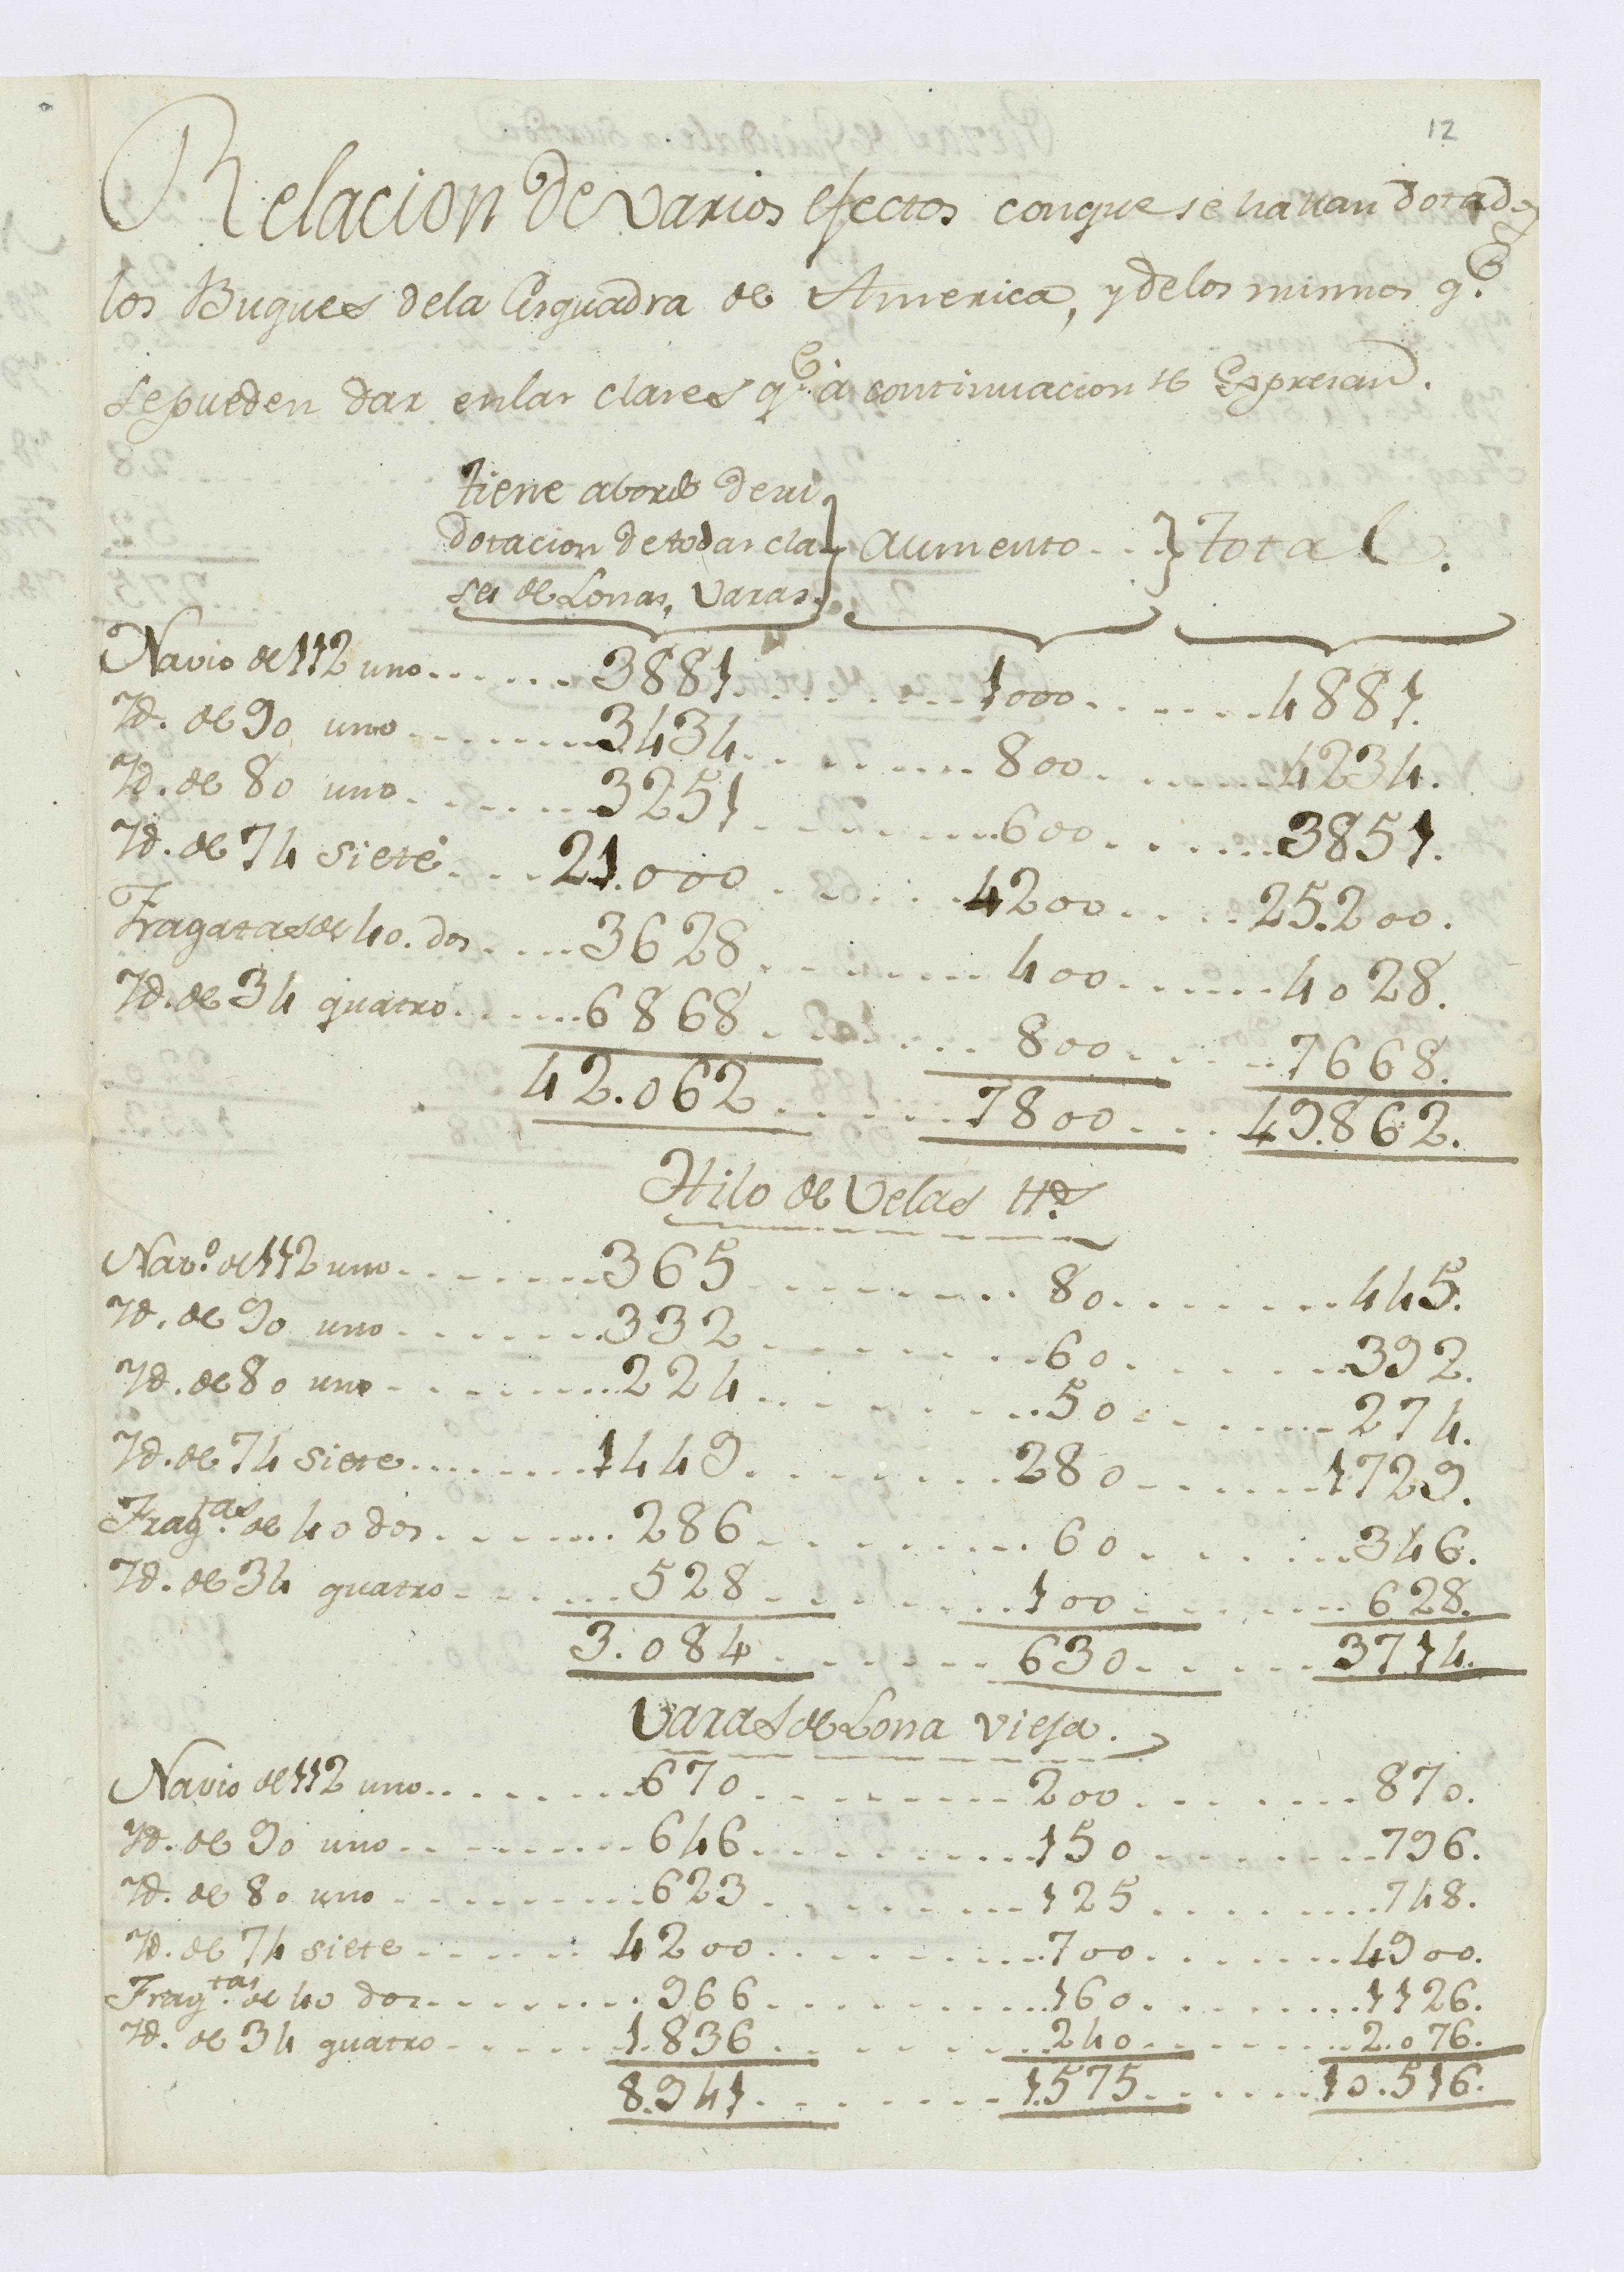 12
Relacion de varios efectos conque se hallan dotados
los Buques dela Esquadra de America, y delos mismos q.e
sepueden dar enlas clases q.e à continuacion se Espresan.
tiene abordo desu
dotacion detodas cla
ses de Lonas, Varas. } aumento... } total.
Navio de 112 uno....... 3881......... 1000........ 4881.
Yd. de 90 uno......... 3434......... 800........ 4234.
Yd. de 80 uno......... 3251......... 600........ 3851.
Yd. de 74 siete.... 21.000...... 4200..... 25.200.
Fragatas de 40. dos..... 3628........ 400....... 4028.
Yd. de 34 quatro....... 6868....... 800...... 7668.
42.062...... 7800.... 49.862.
Hilo de Velas ll.s
Nav.o de 112 uno........ 365......... 80........ 445.
Yd. de 90 uno........ 332......... 60........ 392.
Yd. de 80 uno........ 224......... 50....... 274.
Yd. de 74 siete........ 1449........ 280....... 1729.
Frag.tas de 40 dos........ 286......... 60...... 346.
Yd. de 34 quatro...... 528........ 100....... 628.
3.084....... 630...... 3714.
Varas de Lona vieja.
Navio de 112 uno........ 670......... 200....... 870.
Yd. de 90 uno........ 646......... 150....... 796.
Yd. de 80 uno........ 623......... 125....... 748.
Yd. de 74 siete...... 4200......... 700....... 4900.
Frag.tas de 40 dos........ 966......... 160....... 1126.
Yd. de 34 quatro...... 1.836........ 240....... 2.076.
8.941........ 1.575...... 10.516.